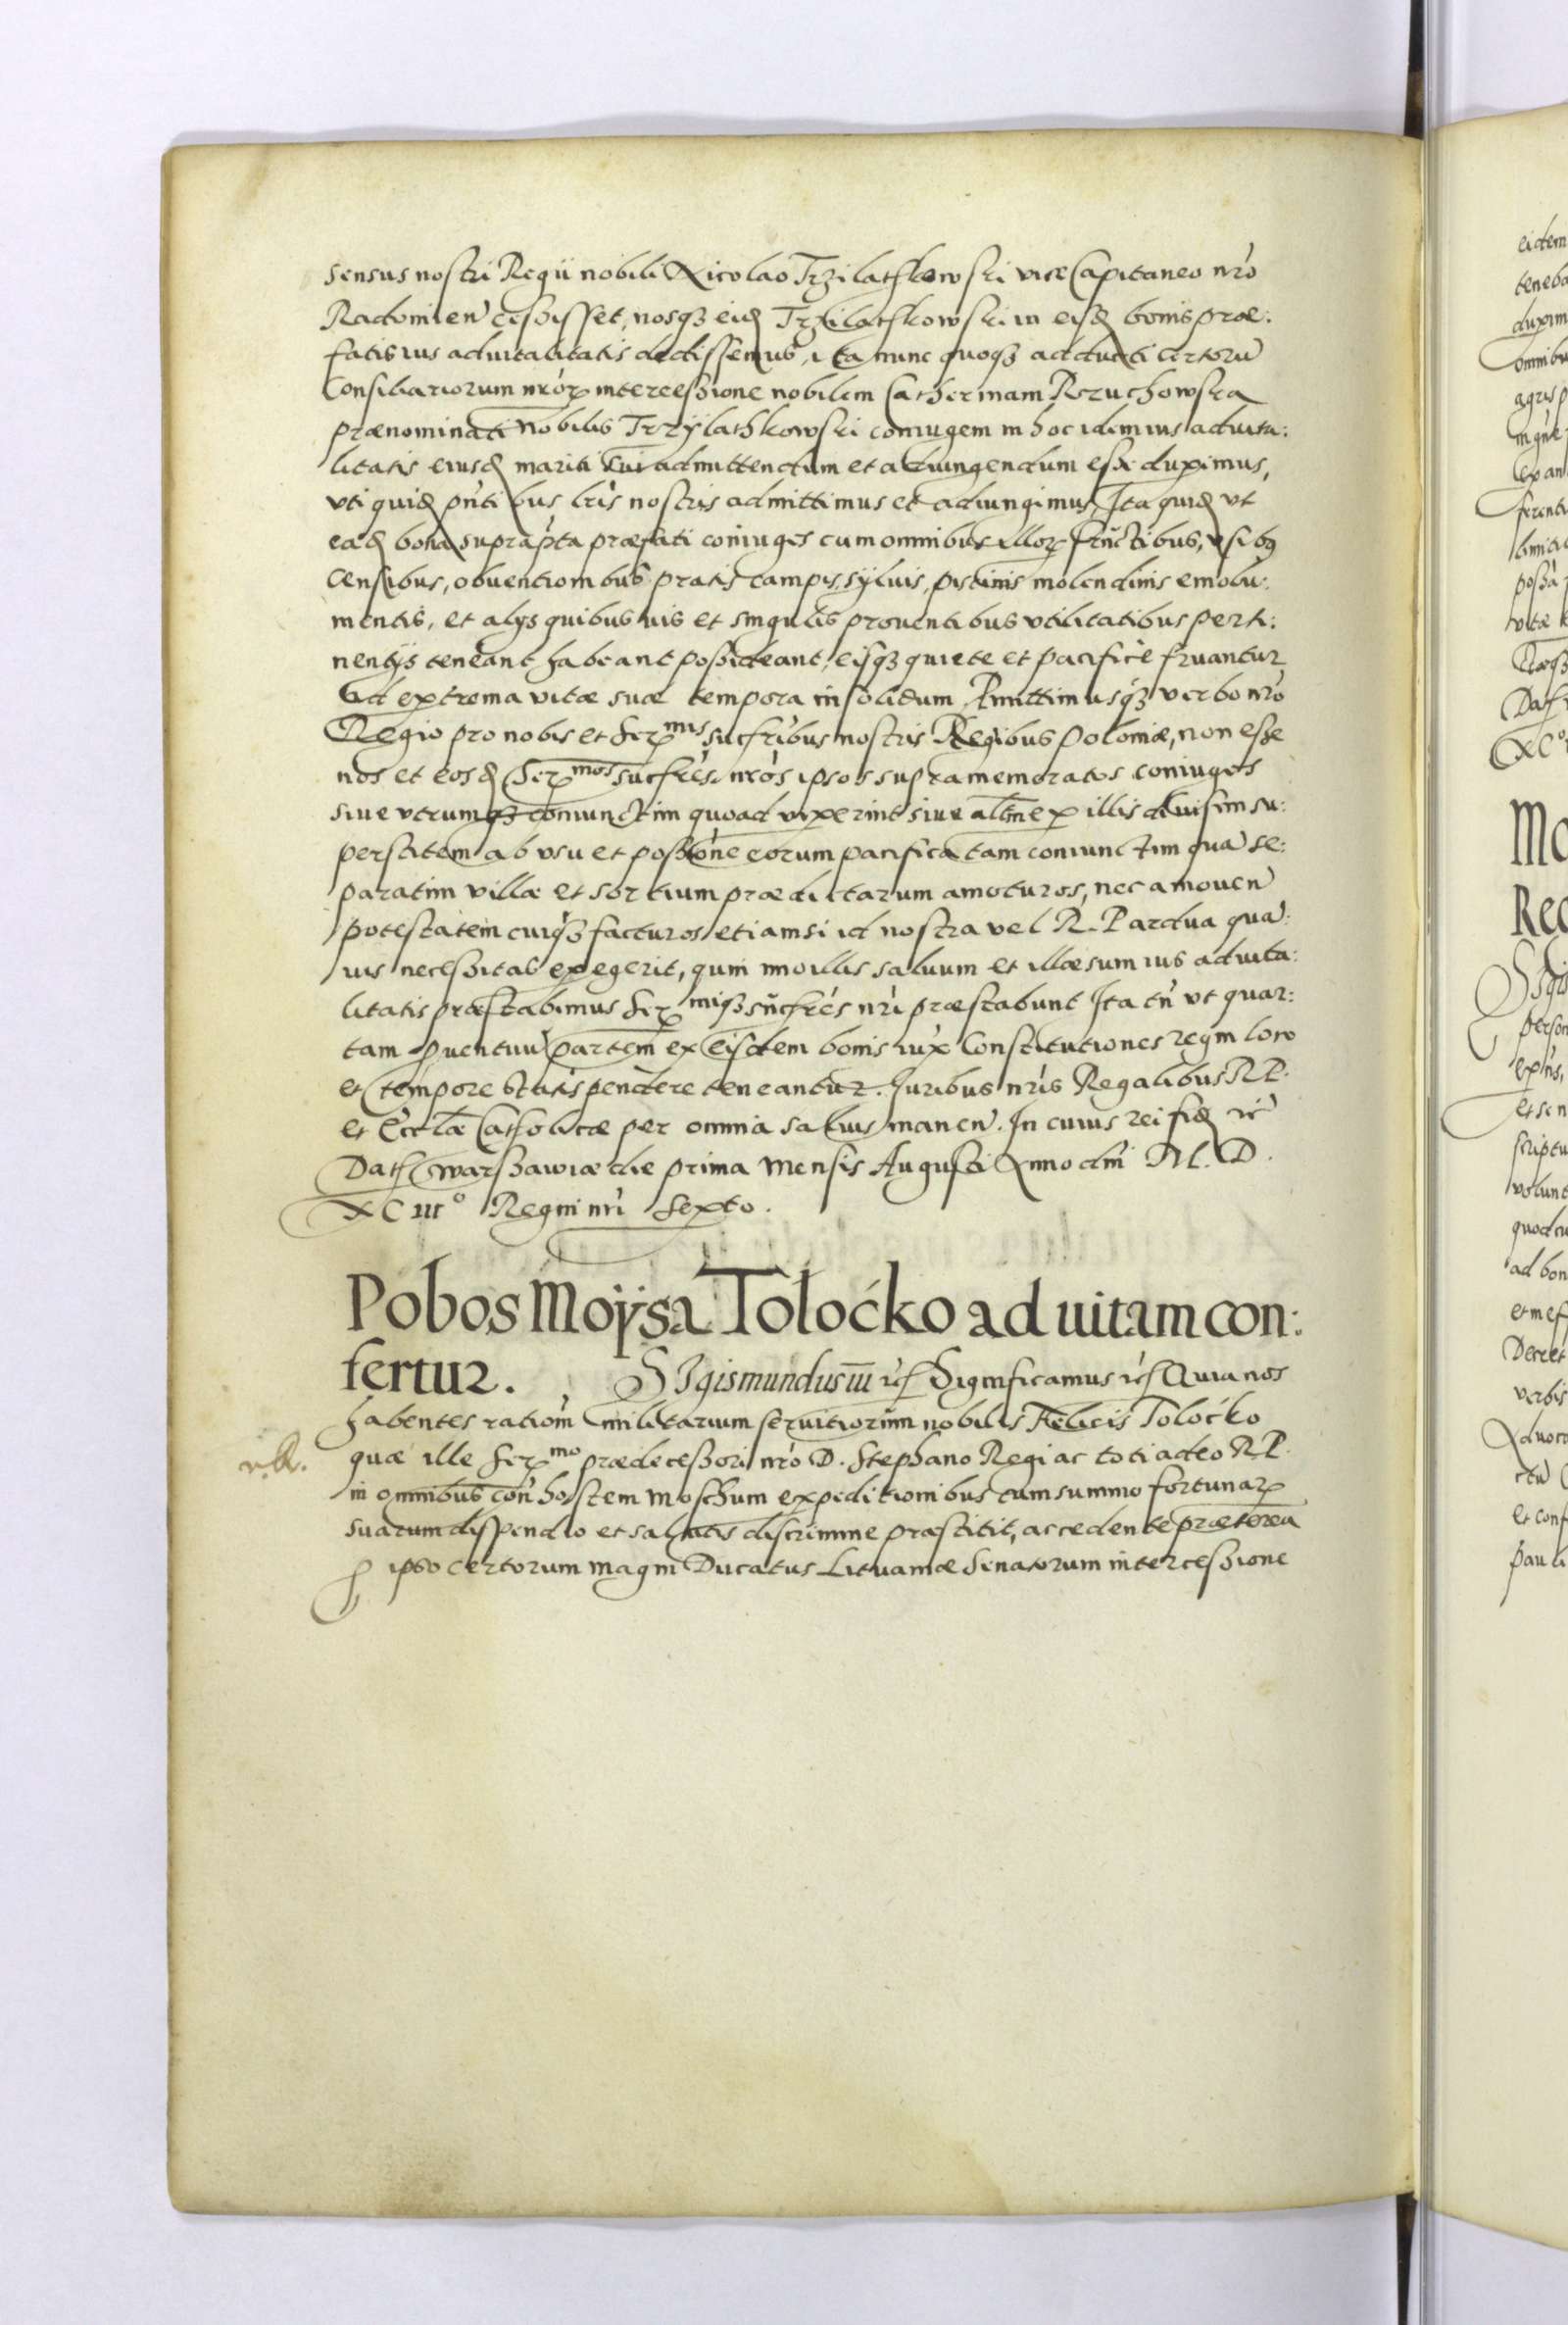 sensus nostri Regii nobili Nicolao Trzilathkowski vice Capitaneo nr̃o
Radomien̄ cessisset, nosq3 eid Trzilathkowski in eisd bonis præ:
fatis ius aduitalitatis dedissemus, ita nunc quoq3 adducti certorū
Consiliariorum nr̃or intercessione nobilem Catherinam Rzuchowska
prænominati nobilis Trzylathkowski coniugem in hoc idem ius aduita:
litatis eiusd mariti sui admittendum et adiungendum esse duximus,
vti quid pñtibus lr̃is nostris admittimus et adiungimus, Ita quid vt
ead bona suprapta præfati coniuges cum omnibus illor fructibus, vsibq
Censibus, obuentionibus pratis campis, syluis, piscinis molendinis emolu:
mentis, et alys quibusuis et singulis prouentibus vtilitatibus perti:
nentijs teneant habeant possideant, eisq3 quiete et pacifice fruantur
ad extrema vitæ suæ tempora in solidum. Pmittimusq3 verbo nr̃o
Regio pro nobis et Ser mis succribus nostris Regibus Poloniæ, non esse
nos et eosd Ser mos succres nr̃os ipsos supramemoratos coniuges
siue vtrumq3 coniunctim quoad vixerint siue altm ex illis diuisim su:
perstitem ab vsu et possone eorum pacifica tam coniunctim qua se:
paratim villæ et sortium prædictarum amoturos, nec amouen̄
potestatem cuiq3 facturos etiamsi id nostra vel R. P ardua qua:
uis necessitas exegerit, quin imo illis saluum et illæsum ius aduita:
litatis præstabimus Ser miq3 succres nr̃i præstabunt Ita tn̄ vt quar:
tam puentuū partem ex eisdem bonis iux Constitutiones regni loco
et tempore statis pendere teneantur. Iuribus nr̃is Regalibus R.P.
et Eccl̃æ Catholicæ per omnia saluis manen̄. In cuius rei fid ic̃
Dat Warssawiæ die prima Mensis Augusti Anno dm̄i M. D.
XCIII° Regni nr̃i Sexto.
Pobos Moÿsa Toloćko ad uitam con:
fertur. SIgismundus III ic̃ Significamus ic̃ Quia nos
habentes rationem militarium seruitiorum nobilis Felicis Toloćko
quæ ille Ser mo prædecessori nr̃o D. Stephano Regi ac toti adeo R.P.
in omnibus con̄ hostem Moschum expeditionibus cum summo fortunar
suarum dispendio et salutis discrimine præstitit, accedente præterea
p ipso certorum Magni Ducatus Lituaniæ Senatorum intercessione